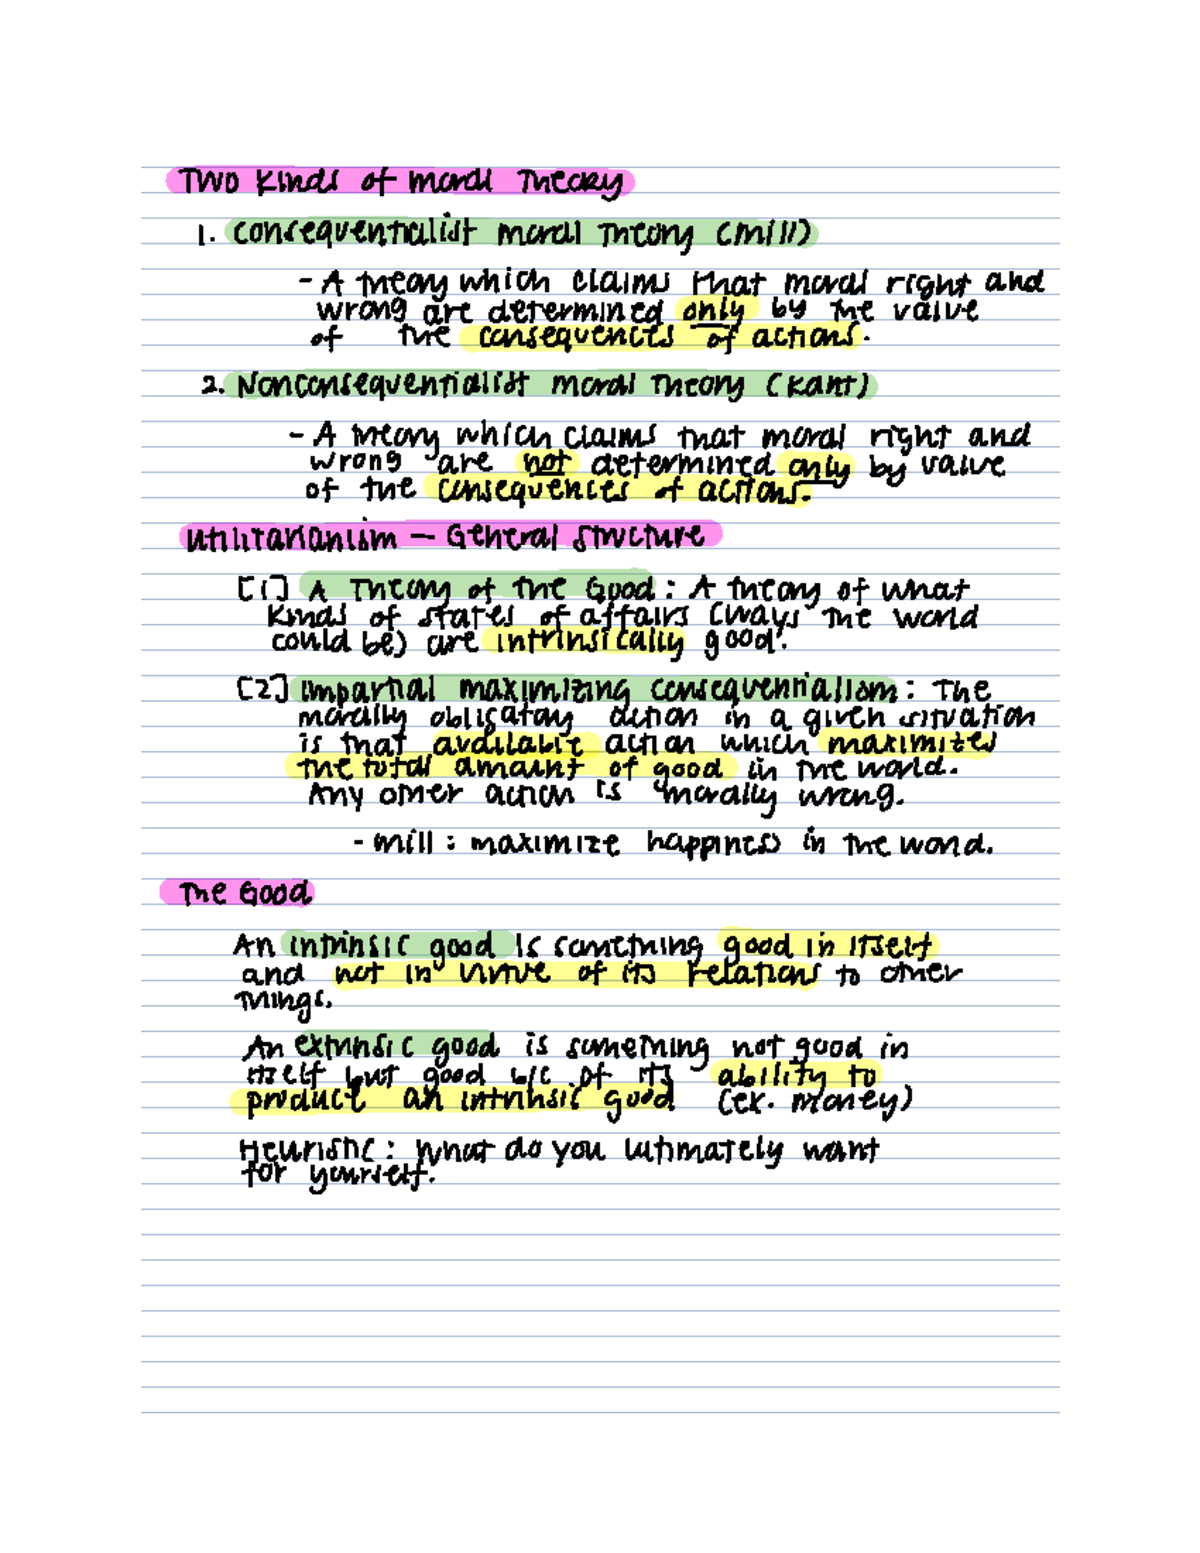 Two Kinds of Moral Theory
1. Consequentialist Moral Theory (Mill)
- A theory which claims that moral right and
wrong are determined only by the value
of the consequences of actions.
2. Nonconsequentialist Moral Theory (Kant)
- A theory which claims that moral right and
wrong are not determined only by value
of the consequences of actions.
Utilitarianism — General Structure
[1] A Theory of the Good: A theory of what
kinds of states of affairs (ways the world
could be) are intrinsically good.
[2] Impartial maximizing consequentialism: The
morally obligatory action in a given situation
is that available action which maximizes
the total amount of good in the world.
Any other action is morally wrong.
- Mill: maximize happiness in the world.
The Good
An intrinsic good is something good in itself
and not in virtue of its relations to other
things.
An extrinsic good is something not good in
itself but good b/c of its ability to
product an intrinsic good (ex. money)
Heuristic: What do you ultimately want
for yourself.